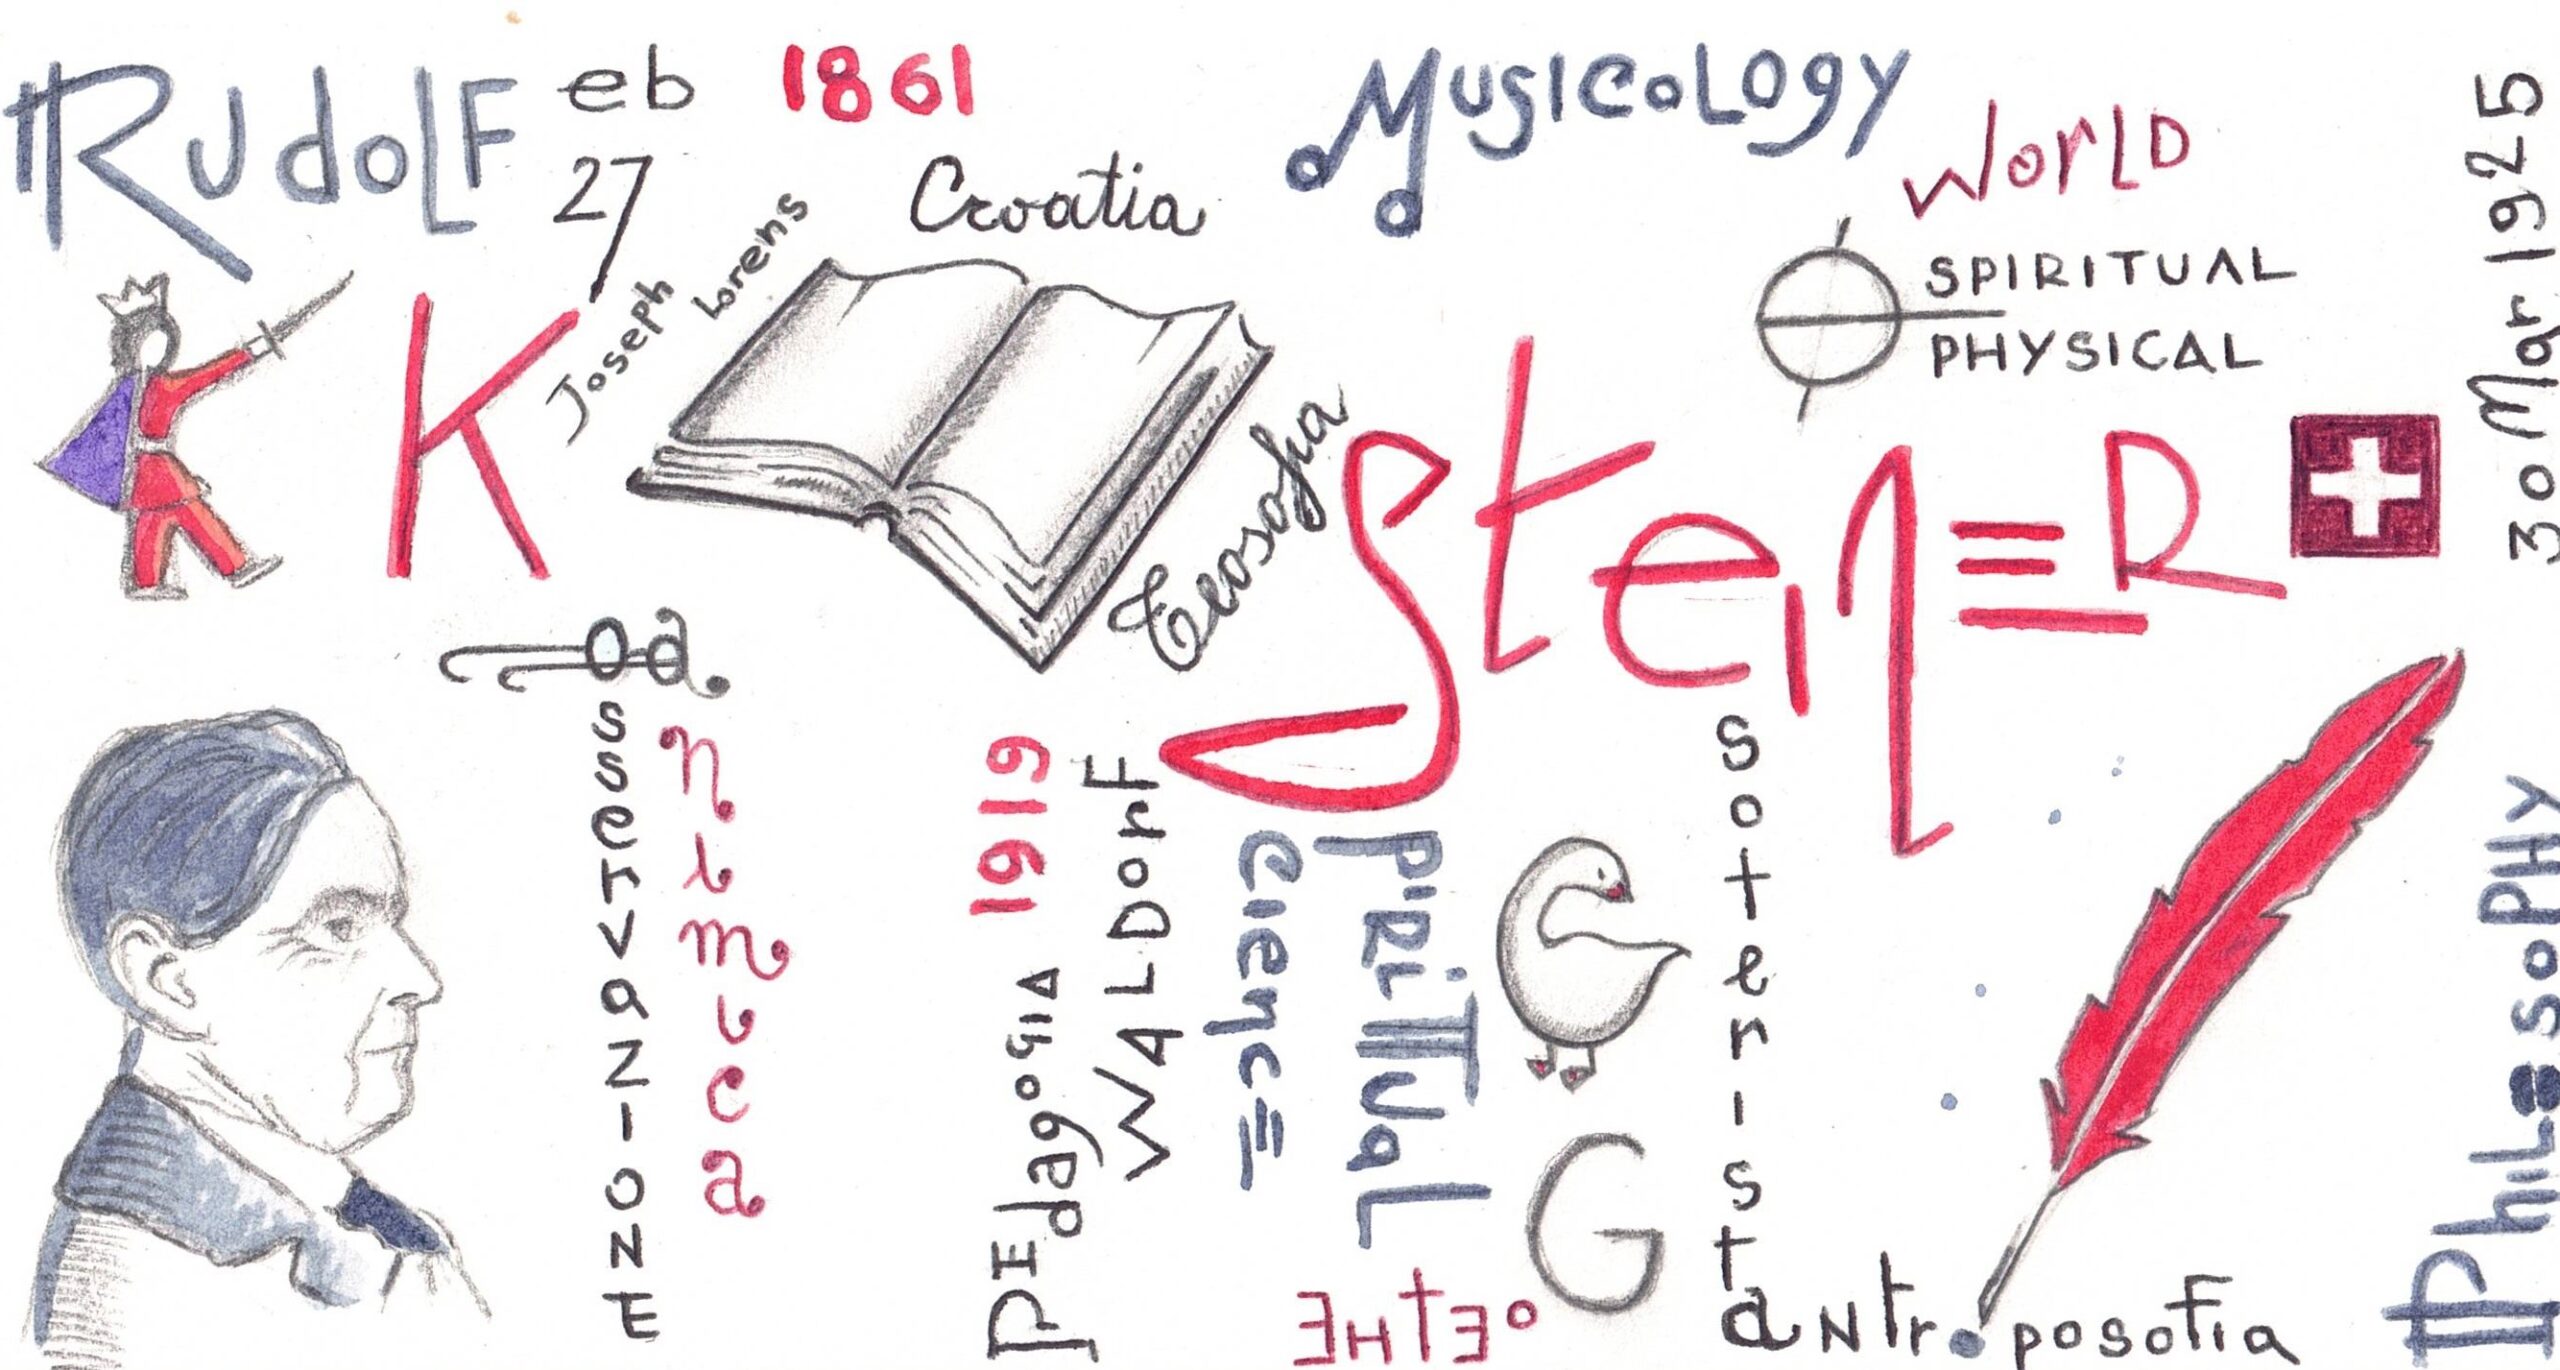 RUdoLF
eb
27
1861
Joseph
Lorens
Croatia
MUSICOLOGY
WORLD
SPIRITUAL
PHYSICAL
30 Mar 1925
K
Teosofia
SteinER
Oa
SSERVAZIONE
nimica
1919
PEdagoGIA
WALDorF
PIRITUAL
CIENCE
G
OETHE
soterista
aNtroposofia
PhiLosoPHY